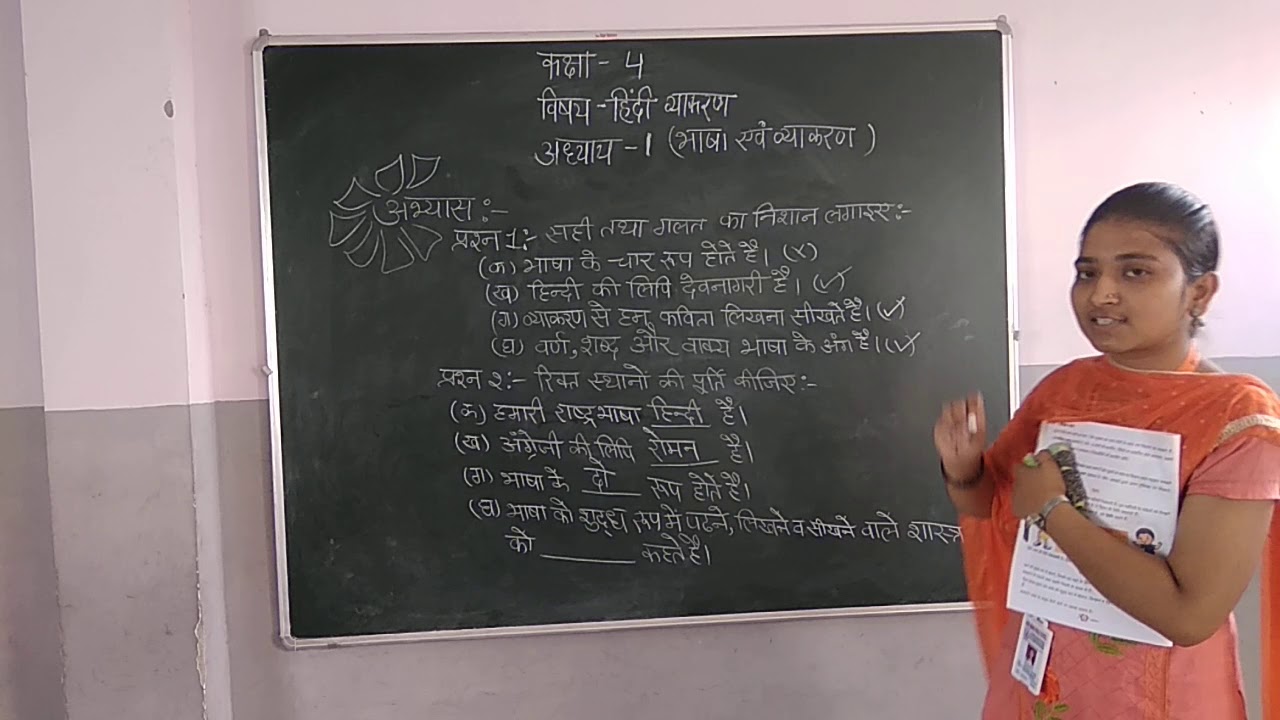 कक्षा - 4
विषय - हिंदी व्याकरण
अध्याय - 1 (भाषा एवं व्याकरण )
अभ्यास :-
प्रश्न 1:- सही तथा गलत का निशान लगाइए :-
(क) भाषा के चार रूप होते है। (×)
(ख) हिन्दी की लिपि देवनागरी है। (✓)
(ग) व्याकरण से हम कविता लिखना सीखते है। (✓)
(घ) वर्ण, शब्द और वाक्य भाषा के अंग है। (✓)
प्रश्न २:- रिक्त स्थानों की पूर्ति कीजिए :-
(क) हमारी राष्ट्रभाषा हिन्दी है।
(ख) अंग्रेजी की लिपि रोमन है।
(ग) भाषा के दो रूप होते है।
(घ) भाषा को शुद्ध रूप में पढने, लिखने व सीखने वाले शास्त्र
को ______ कहते है।